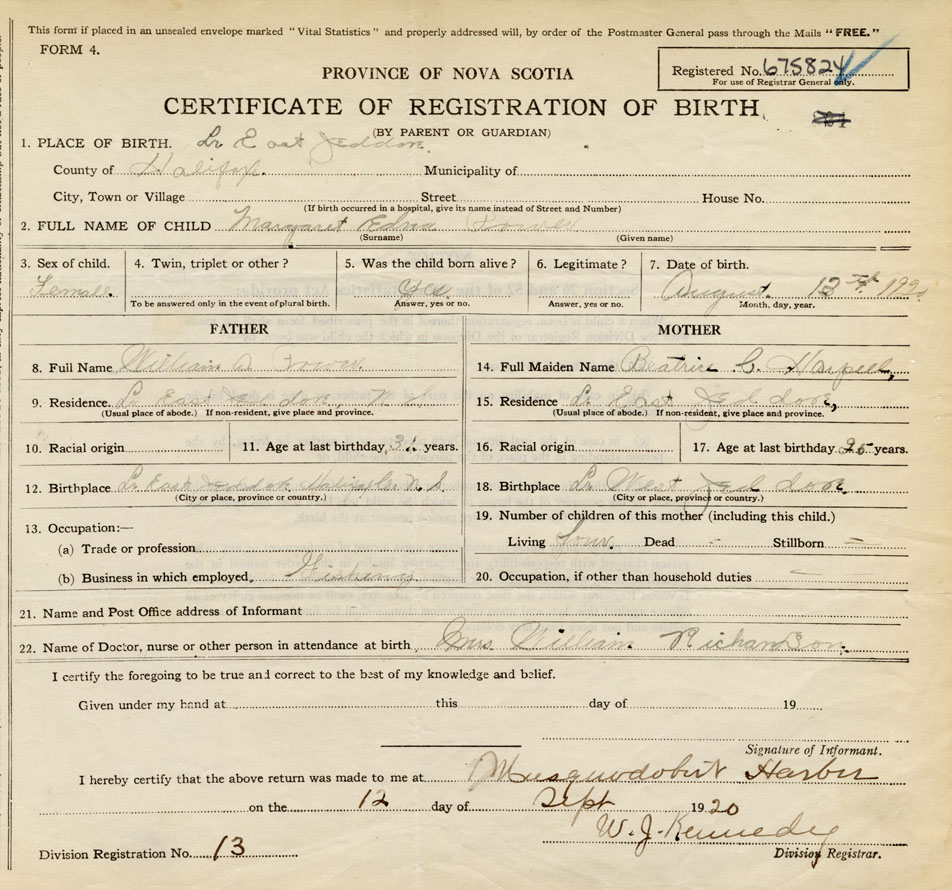 This form if placed in an unsealed envelope marked "Vital Statistics" and properly addressed will, by order of the Postmaster General pass through the Mails "FREE."
FORM 4.
Registered No. 675824
For use of Registrar General only.
PROVINCE OF NOVA SCOTIA
CERTIFICATE OF REGISTRATION OF BIRTH
(BY PARENT OR GUARDIAN)
1. PLACE OF BIRTH. Lr East Jeddore
County of Halifax. Municipality of
City, Town or Village Street House No.
(If birth occurred in a hospital, give its name instead of Street and Number)
2. FULL NAME OF CHILD Margaret Edna
(Surname) (Given name)
3. Sex of child. 4. Twin, triplet or other? 5. Was the child born alive? 6. Legitimate? 7. Date of birth.
Female. Yes August 12th 192
To be answered only in the event of plural birth. Answer, yes or no. Answer, yes or no. Month, day, year.
FATHER MOTHER
8. Full Name William 14. Full Maiden Name Beatrice C. Harpell,
9. Residence. Lr East Jeddore N.S. 15. Residence Lr East Jeddore,
(Usual place of abode.) If non-resident, give place and province. (Usual place of abode.) If non-resident, give place and province.
10. Racial origin 11. Age at last birthday, years. 16. Racial origin 17. Age at last birthday 25 years.
12. Birthplace Lr East N.S. 18. Birthplace Lr West Jeddore.
(City or place, province or country.) (City or place, province or country.)
13. Occupation:— 19. Number of children of this mother (including this child.)
(a) Trade or profession Living four. Dead - Stillborn -
(b) Business in which employed. Fishing 20. Occupation, if other than household duties -
21. Name and Post Office address of Informant
22. Name of Doctor, nurse or other person in attendance at birth Mrs William Richardson.
I certify the foregoing to be true and correct to the best of my knowledge and belief.
Given under my hand at this day of 19
Signature of Informant.
I hereby certify that the above return was made to me at Musquodobit Harbor
on the 12 day of Sept 1920
W. J. Kennedy
Division Registration No. 13 Division Registrar.